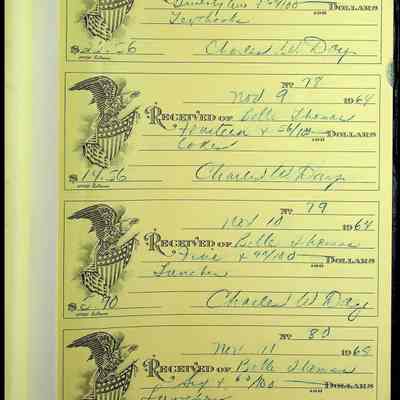 DOLLARS
Textbooks
Charles W. Day
No 78
Nov 9 1964
RECEIVED OF Belle Thomas
Fourteen + 56/100 DOLLARS
Cokes
$14.56 Charles W. Day
No 79
Nov 10 1964
RECEIVED OF Belle Thomas
Five + /100 DOLLARS
Lunches
Charles W. Day
No 80
Nov 11 196
RECEIVED OF Belle Thomas
/100 DOLLARS